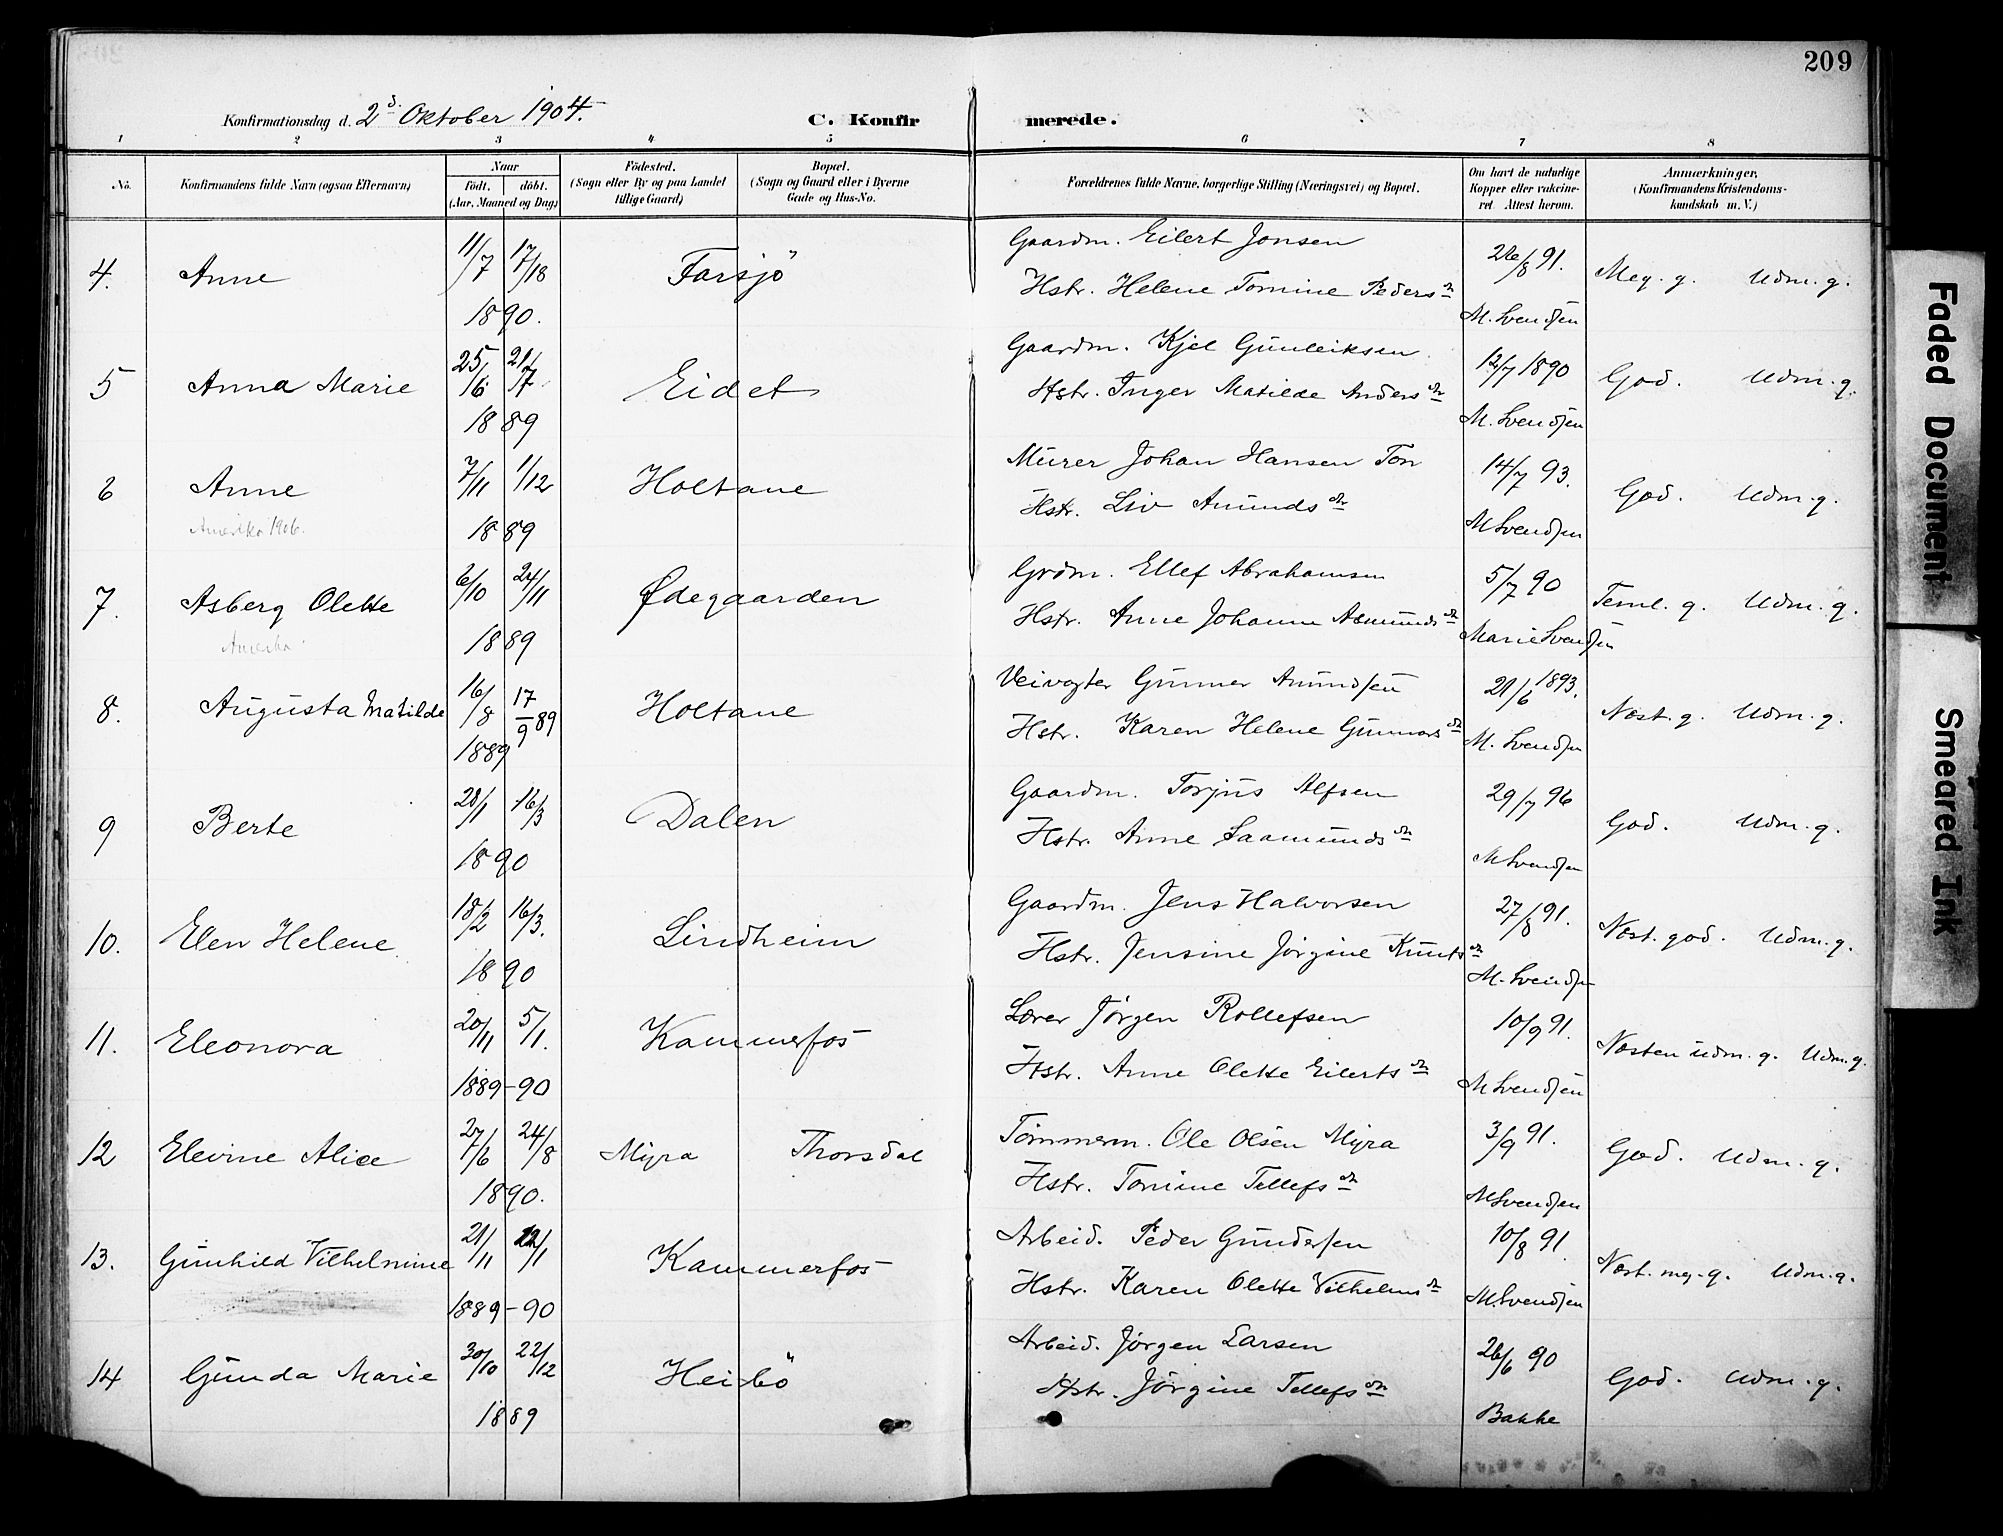 209
Konfirmationsdag d. 2d Oktober 1904. C. Konfirmerede.
1 2 3 4 5 6 7 8
No. Konfirmandens fulde Navn (ogsaa Efternavn) Naar født, døbt. (Aar, Maaned og Dag) Fødested. (Sogn eller By og paa Landet tillige Gaard) Bopæl. (Sogn og Gaard eller i Byerne Gade og Hus-No. Forældrenes fulde Navne, borgerlige Stilling (Næringsvei) og Bopæl. Om havt de naturlige Kopper eller vakcineret. Attest herom. Anmærkninger, (Konfirmandens Kristendomskundskab m. V.)
4. Anne 11/7 17/18 Farsjö Gaardm. Eilert Jonsen 26/8 91. Meg. g. Udm. g.
1890. Hstr. Helene Tomine Pedersdr M. Svendsen
5 Anna Marie 25/6 21/7 Eidet Gaardm. Kjel Gunleiksen 12/7 1890 God. Udm. g.
1889 Hstr. Inger Matilde Andersdr M. Svendsen
6 Anne 7/11 1/12 Holtane Murer Johan Hansen Ton 14/7 93. God. Udm. g.
Amerika 1906. 1889 Hstr. Liv Amundsdr M Svendsen
7. Asberg Olette 6/10 24/11 Ødegaarden Grdm. Ellef Abrahamsen 5/7 90 Teml. g. Udm. g.
Amerika 1889 Hstr. Anne Johanne Asmundsdr Marie Svendsen
8. Augusta Matilde 16/8 17/9 89 Holtane Veivogter Gunner Amundsen 21/6 1893. Næst. g. Udm. g.
1889 Hstr. Karen Helene Gunnarsdr M. Svendsen
9 Berte 28/1 16/3 Dalen Gaardm. Torjus Alfsen 29/7 96 God. Udm. g.
1890 Hstr. Anne Saamundsdr M Svendsen
10. Elen Helene 18/2 16/3. Lindheim Gaardm. Jens Halvorsen 27/8 91. Næst. god. Udm. g.
1890 Hstr. Jensine Jørgine Knutsdr M. Svendsen
11. Eleonora 20/11 5/1. Kammerfos Lærer Jørgen Rollefsen 10/9 91. Næsten udm. g. Udm. g.
1889-90 Hstr. Anne Olette Eilertsdr M Svendsen
12 Elevine Alice 27/6 24/8 Myra Thorsdal Tømmerm. Ole Olsen Myra 3/9 91. God. Udm. g.
1890. Hstr. Tomine Tellefsdr M Svendsen
13. Gunhild Vilhelmine 21/11 12/1 Kammerfos Arbeid. Peder Gundersen 10/8 91. Næst. meg. g. Udm. g.
1889-90 Hstr. Karen Olette Vilhelmsdr M. Svendsen
14 Gunda Marie 30/10 22/12 Heibö Arbeid. Jørgen Larsen 26/6 90 God. Udm. g.
1889 Hstr. Jørgine Tellefsdr Bakke
Faded Document
Smeared Ink